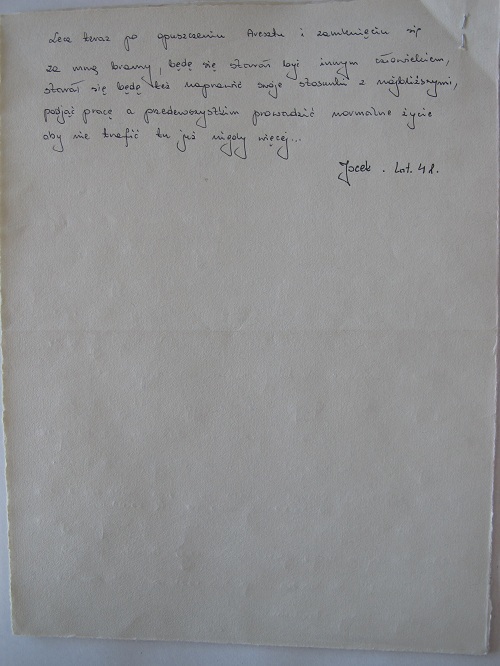 Lecz teraz po opuszczeniu Aresztu i zamknięciu się
za mną bramy, będę się starał być innym człowiekiem,
starał się będę też naprawić swoje stosunki z najbliższymi,
podjąć pracę a przedewszystkim prowadzić normalne życie
aby nie trafić tu już nigdy więcej...
Jacek. Lat. 41.